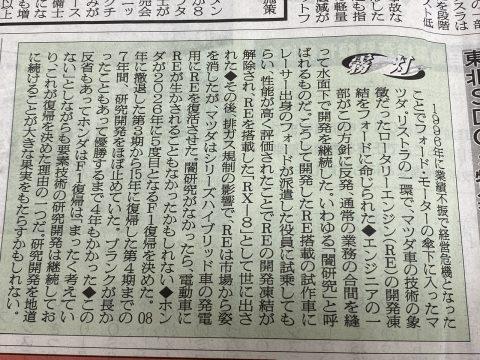 スラは
を段階
スト低
故な
も指
軽量
減が
以上
施策
東北SDC
霧灯
1996年に業績不振で経営危機となった
ことでフォード・モーターの傘下に入ったマ
ツダ。リストラの一環で、マツダ車の技術の象
徴だったロータリーエンジン（RE）の開発凍
結をフォードに命じられた◆エンジニアの一
部がこの方針に反発、通常の業務の合間を縫
って水面下で開発を継続した。いわゆる「闇研究」と呼
ばれるものだ。こうして開発したRE搭載の試作車に
レーサー出身のフォードが派遣した役員に試乗しても
らい、性能が高く評価されたことでREの開発凍結が
解除され、RE搭載した「RX―8」として世に出さ
れた◆その後、排ガス規制の影響で、REは市場から姿
を消したが、マツダはシリーズハイブリッド車の発電
用にREを復活させた。闇研究がなかったら、電動車に
REが生かされることもなかったかもしれない◆ホン
ダが2026年に5度目となるF1復帰を決めた。08
年に撤退した第3期から15年に復帰した第4期までの
7年間、研究開発をほぼ止めていた。ブランクが長か
ったこともあって優勝するまで4年もかかった◆この
反省もあってホンダはF1復帰は、まったく考えてい
ない」としながらも要素技術の研究開発は継続してお
り、これが復帰を決めた理由の一つだ。研究開発を地道
に続けることが大きな果実をもたらすかもしれない。